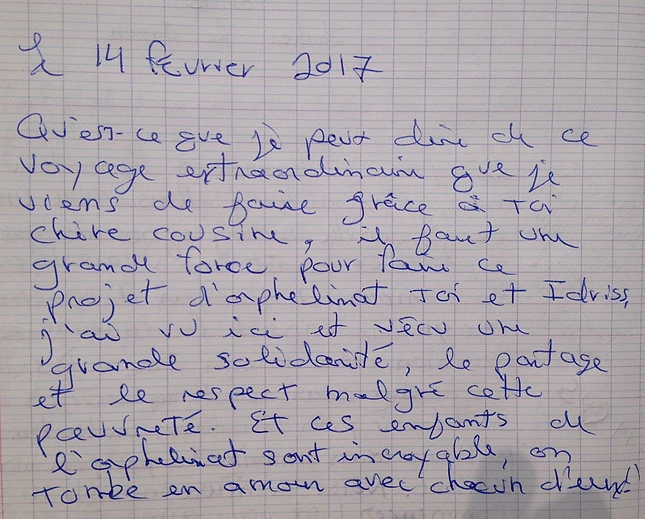 Le 14 février 2017
Qu'est-ce que je peux dire de ce
voyage extraordinaire que je
viens de faire grâce à toi
chère cousine, il faut une
grande force pour faire ce
projet d'orphelinat toi et Idriss,
j'ai vu ici et vécu une
grande solidarité, le partage
et le respect malgré cette
pauvreté. Et ces enfants de
l'orphelinat sont incroyable, on
tombe en amour avec chacun d'eux!